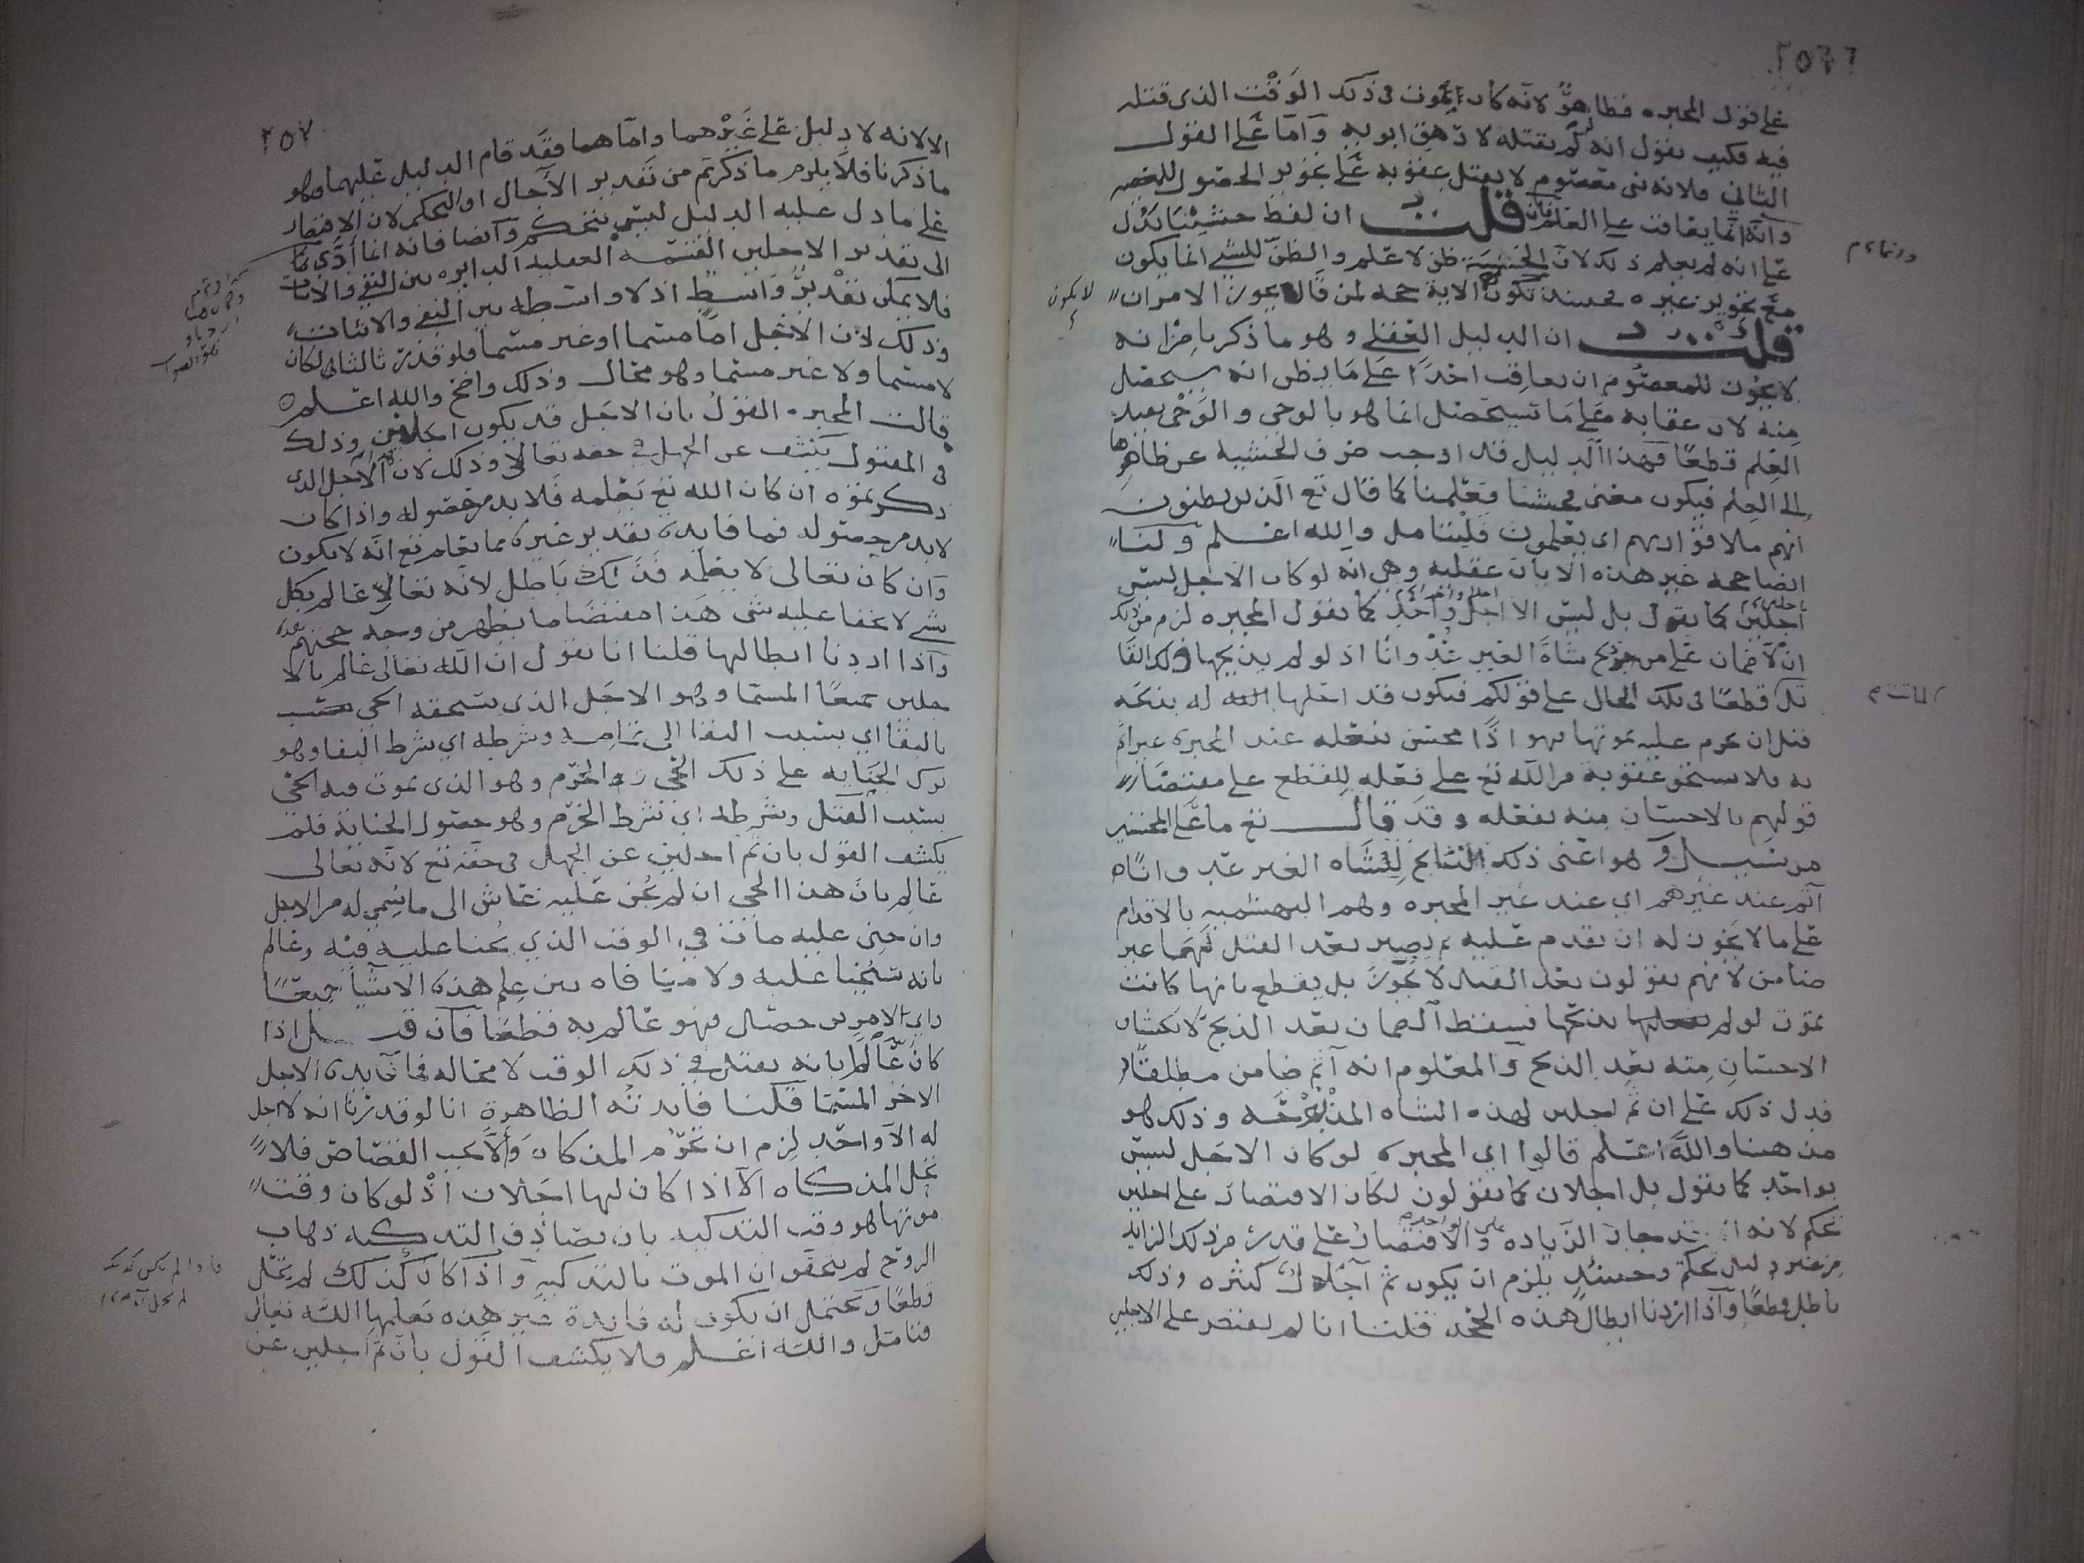 ٢٥٦
على قول المجبره فظاهر لانه كان يموت في ذلك الوقت الذي قتله
فيه فكيف يقول انه لو لم يقتله لارهق ابويه واما على القول
الثاني فلانه نبى معصوم لا يقتل عقوبه على تجويز الحصول للمعصيه
وانه انما يعاقب على القطع فان قلت ان لفظ خشينا يدل
على انه لم يعلم ذلك لان الخشية ظن لا علم والظن للشي انما يكون
مع تجويز غيره فحينئذ تكون الاية حجه لمن قال يجوز الامران
لا يكون
قلت ان الدليل العقلي وهو ما ذكرنا من انه
لا يجوز للمعصوم ان يعاقب احدًا على ما يظن انه سيحصل
منه لان عقابه على ما سيحصل انما هو بالوحي والوحي يفيد
العلم قطعًا فهذا الدليل قد اوجب صرف الخشيه عن ظاهرها
الى العلم فيكون معنى فخشينا فعلمنا كما قال تع الذين يظنون
انهم ملاقوا ربهم اي يعلمون فليتامل والله اعلم ولنا
ايضا حجه غير هذه الايات عقليه وهي انه لو كان الاجل ليس
اجلين كما نقول بل ليس الا اجل واحد كما يقول المجبره لزم من ذلك
ان لا ضمان على من ذبح شاة الغير عدوانًا اذ لو لم يذبحها ذلك
قطعًا في تلك الحال على قولكم فيكون قد احلها له بذبحه
قبل ان يحرم عليه بموتها فهو اذًا محسن بفعله عند المجبرة غير اثم
به فلا يستحق عقوبة من الله تع على فعله للقطع على مقتضا
قولهم بالاحسان منه بفعله وقد قال تع ما على المحسنين
من سبيل وهو اعنى ذلك الذابح لشاه الغير عدوانًا
آثم عند غيرهم اي عند غير المجبره وهم البهشميه بالاقدام
على ما لا يجوز له ان يقدم عليه ثم يصير بعد القتل عندهما غير
ضامن لانهم يقولون بعد القتل لا يجوز بل يقطع بانها كانت
تموت لو لم يذبحها فسقط الضمان بعد الذبح لانكشاف
الاحسان منه بعد الذبح والمعلوم انه آثم ضامن مطلقًا
فدل ذلك على ان ثم اجلين لهذه الشاه المذبوحه وذلك هو
مذهبنا والله اعلم قالوا اي المجبرة لو كان الاجل ليس
بواحد كما نقول بل اجلان كما تقولون لكان الاقتصار على اجلين
تحكم لانه اذا قد جاز الزياده على الواحد والاقتصار على قدر من ذلك الزايد
من غير دليل تحكم وحينئذ يلزم ان يكون ثم آجال كثيره وذلك
باطل قطعًا واذا اردنا ابطال هذه الحجة قلنا انا لم نقتصر على الاجلين
٢٥٧
الا لانه لا دليل على غيرهما واما هما فقد قام الدليل عليهما وهو
ما ذكرنا فلا يلزم ما ذكرتم من تقدير الآجال او التحكم لان الاقتصار
على ما دل عليه الدليل ليس بتحكم وايضا فانه انما أدى بنا
الى تقدير الاجلين القسمه العقليه الدائره بين النفي والاثبات
فلا يمكن تقدير واسط اذ لا واسطه بين النفي والاثبات
وذلك لان الاجل اما مسما او غير مسما فلو قدر ثالثا لكان
لا مسما ولا غير مسما وهو محال وذلك واضح والله اعلم
قالت المجبره القول بان الاجل قد يكون اجلين وذلك
في المقتول يكشف عن الجهل في حقه تعالى وذلك لان الاجل الذي
ذكرتموه ان كان الله تع يعلمه فلا بد من حصوله واذا كان
لا بد من حصوله فما فايدة تقدير غيره مما يعلم تع انه لا يكون
وان كان تعالى لا يعلمه فذلك باطل لانه تعالى عالم بكل
شي لا يخفا عليه شى هذا مقتضا ما يظهر من وجه حجتهم هذه
واذا اردنا ابطالها قلنا انا نقول ان الله تعالى عالم بالا
جلين جميعًا المسما وهو الاجل الذي يستحقه الحي
بالبقا اي بسبب البقا الى زاحمه وشرطه اي شرط البقا وهو
ترك الجنايه على ذلك الحي والمخرم وهو الذي يموت فيه الحي
بسبب القتل وشرطه اي شرط الخرم وهو حصول الجناية فلم
يكشف القول بان ثم اجلين عن الجهل في حقه تع لانه تعالى
عالم بان هذا الحي ان لم يجن عليه عاش الى ما سُمي له من الاجل
وان جنى عليه مات في الوقت الذي يجنا عليه فيه وعالم
بانه سيُجنا عليه ولا منافاه بين علم هذه الاشيا جميعًا
واي الامرين حصل فهو عالم به قطعًا فان قيل اذا
كان عالمًا بانه يقتل في ذلك الوقت لا محاله فما فايدة الاجل
الاخر المسما قلنا فايدته الظاهرة انا لو قدرنا انه لا اجل
له الا واحد لزم ان تحرم المذكاة ولا يجب القصاص فلا
تحل المذكاه الا اذا كان لها اجلان اذ لو كان وقت
موتها هو وقت التذكيه بان يصادف التذكيه ذهاب
الروح لم يتحقق ان الموت بالتذكيه واذا كان كذلك لم يحل
قطعًا ويحتمل ان تكون له فايدة غير هذه يعلمها الله تعالى
فتامل والله اعلم ولا يكشف القول بان ثم اجلين عن
فاذا لم يكن كذلك